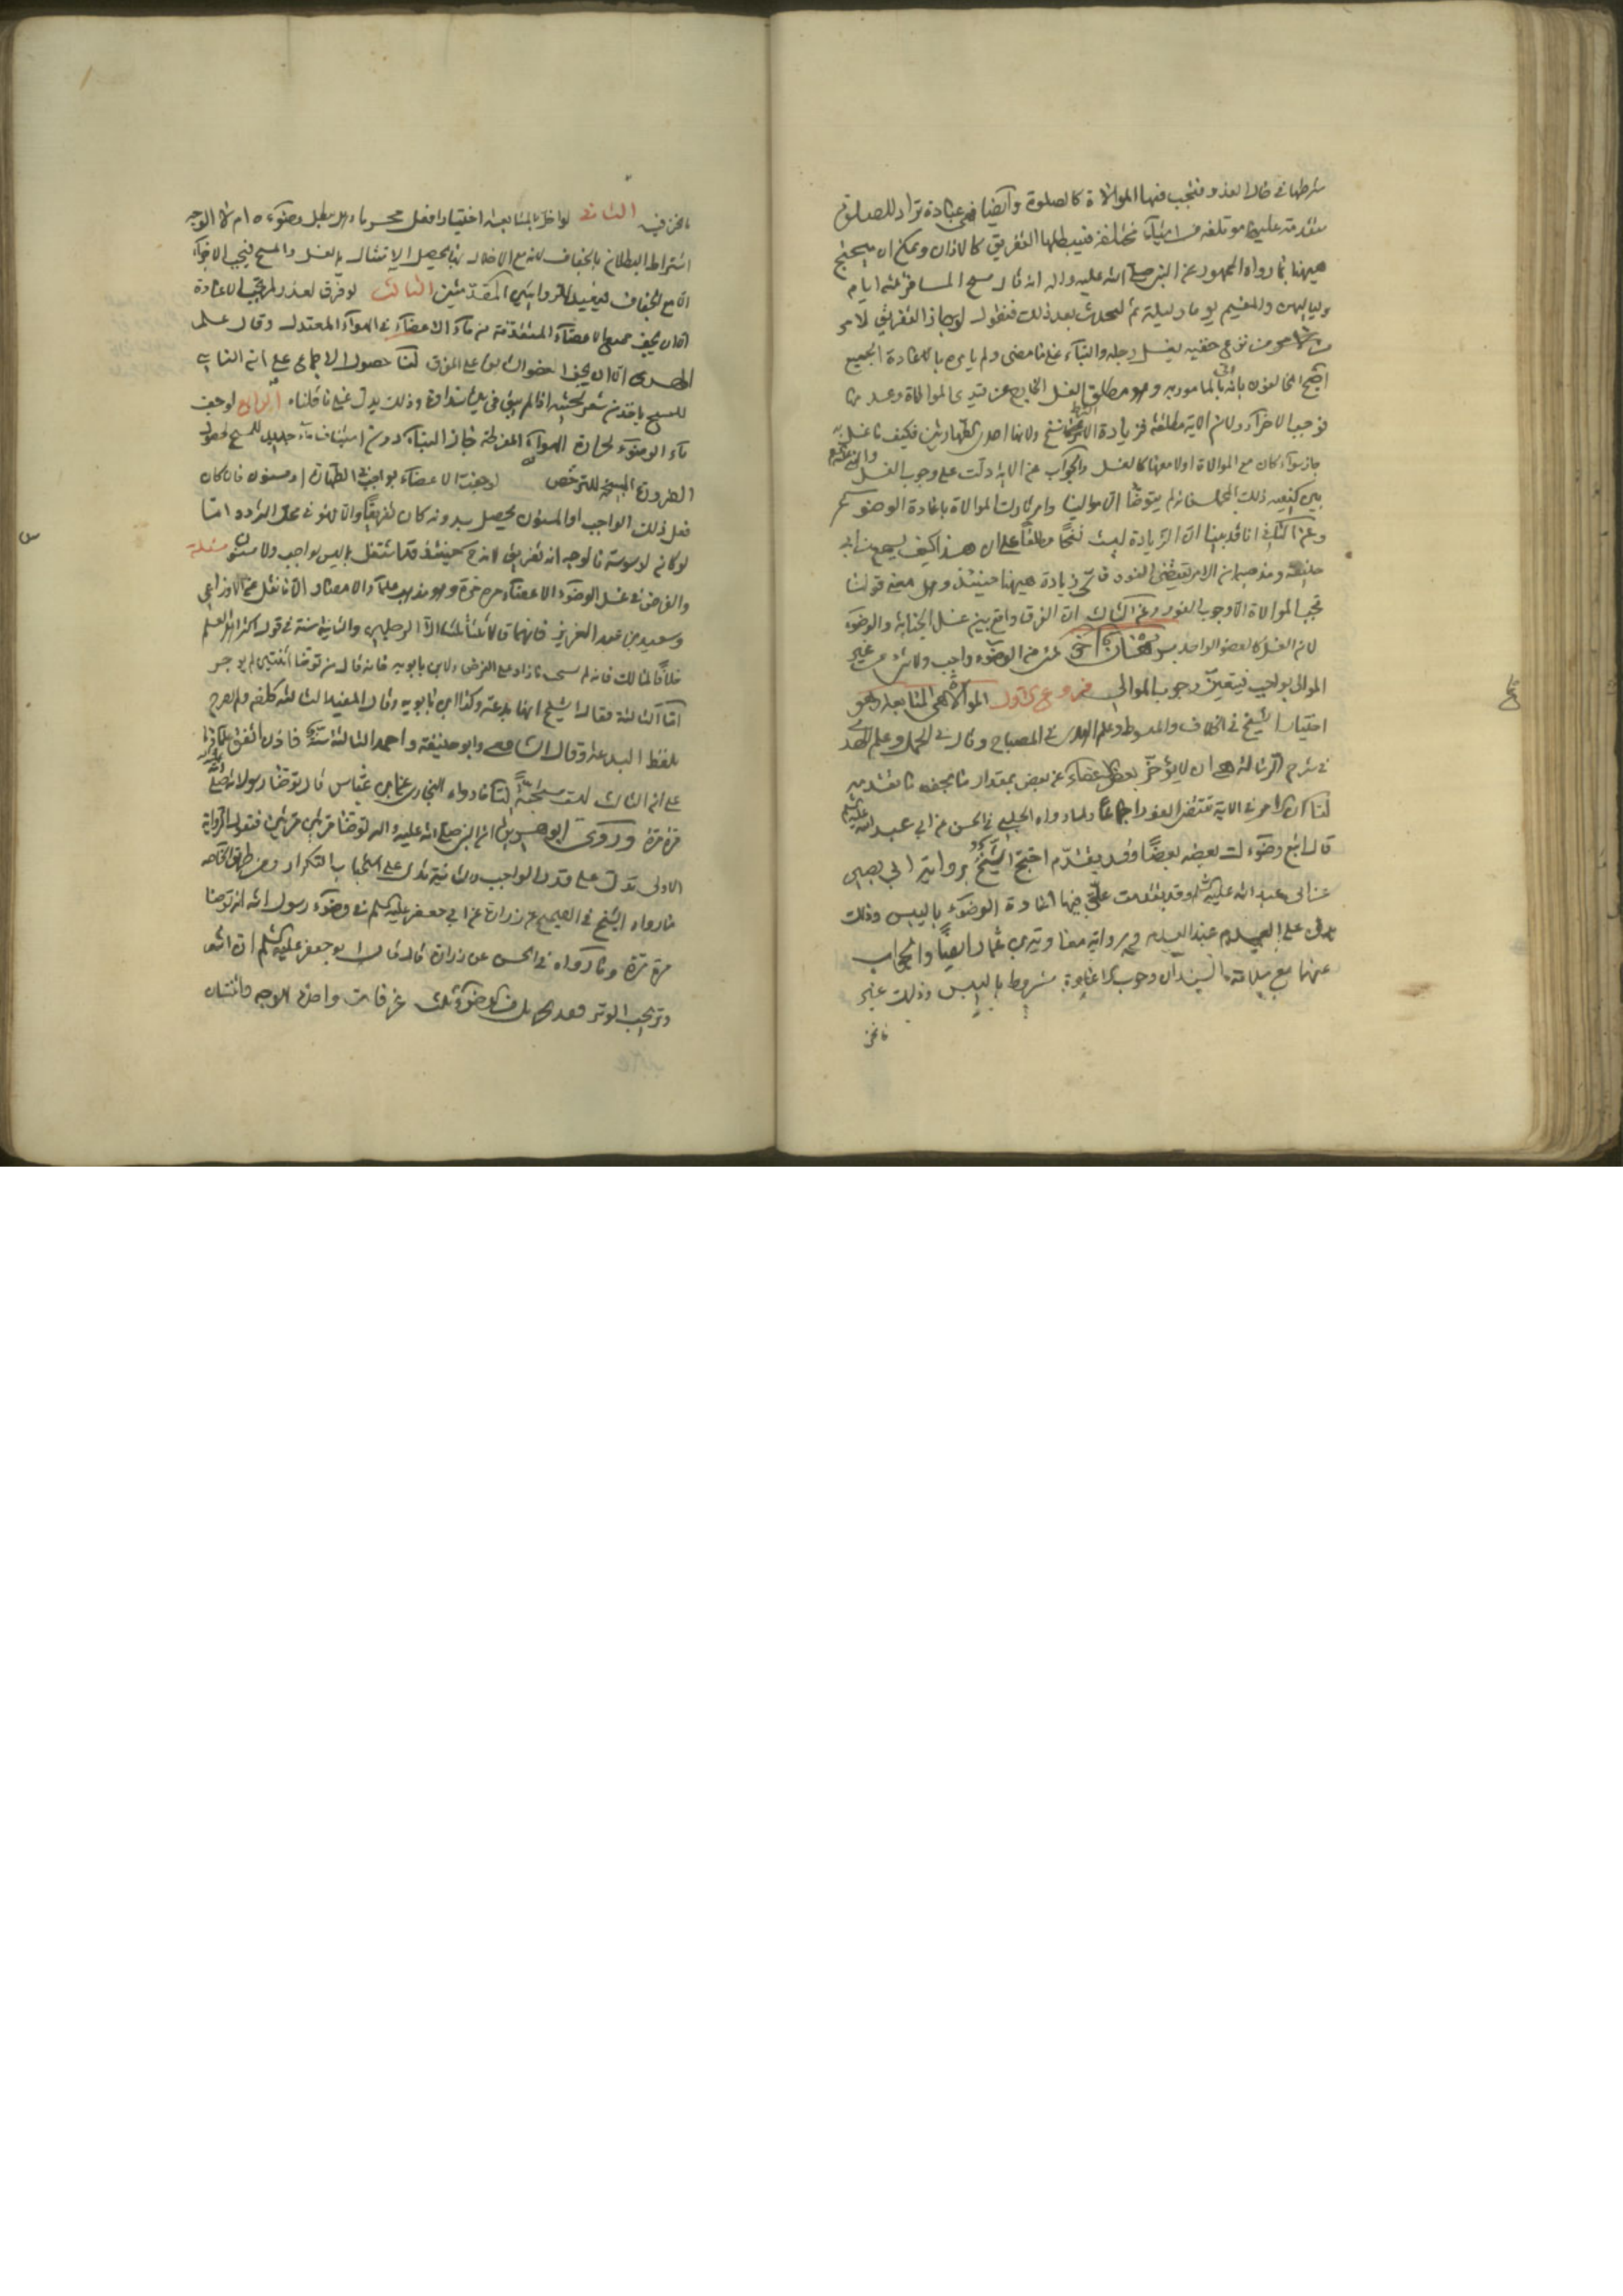 شرطها في حال العذر فتجب فيها الموالاة كالصلوة وأيضا فهي عبادة تراد للصلوة
متقدمة عليها مؤتلفة من اشياء مختلفة فيبطلها التفريق كالاذان ويمكن ان يحتج
هيهنا بما رواه الجمهور عن النبي صلى الله عليه واله انه قال مسح المسافر ثلثة ايام
ولياليهن والمقيم يوما وليلة ثم المحدث بعد ذلك فنقول لو جاز التفريق لامر
من نزع خفيه بغسل رجله والبناء على ما مضى ولم يأمره بالاعادة الجميع
احتج المخالفون بانه اتى بالمأمور به وهو مطلق الغسل الخارج عن قيدي الموالاة وعدمها
فوجب الاجزاء ولان الاية مطلقة فزيادة الشرط نسخ ولانها احدى الطهارتين فكيف ما غسل به
جاز سواء كان مع الموالاة اولا معها كالغسل والجواب عن الاية دلت على وجوب الغسل
بين كيفيه ذلك المجمل فانه لم يتوضأ الا مواليا وامر تارك الموالاة باعادة الوضوء
وعن الثاني انا قد بينا ان الزيادة ليست نسخا مطلقا على ان هذا كيف يسمع من ابي
حنيفة ومذهبه ان الامر يقتضي الفور فاي زيادة هيهنا حينئذ وهل معنى قولنا
تجب الموالاة الا وجوب الفور وعن الثالث ان الفرق واقع بين غسل الجنابة والوضوء
لان الغسل كالعضو الواحد
الموالي بواجب فيتعين وجوب الموالي فروع الاول الموالاة هي المتابعة وهو
اختيار الشيخ في الخلاف والمبسوط وعلم الهدى في المصباح وقال في الجمل وعلم الهدى
في شرح الرسالة هي ان لا يؤخر بعض الاعضاء عن بعض بمقدار ما يجف ما تقدم
لنا ان الامر في الاية تقتضي الفور اجماعا ولما رواه الحلبي في الحسن عن ابي عبد الله عليه السلام
قال اتبع وضوءك بعضه بعضا وقد تقدم احتج الشيخ برواية ابي بصير
عن ابي عبد الله عليه السلام وقد تقدمت علق فيها اعادة الوضوء باليبس وذلك
يدل على العدم عند العدم وبرواية معوية بن عمار ايضا والجواب
عنهما مع سلامة السند ان وجوب الاعادة مشروط باليبس وذلك غير
ما نحن
ما نحن فيه الثاني لو اخل بالمتابعة اختيارا فعل محرما وهل يبطل وضوءه ام لا الوجه
اشتراط البطلان بالجفاف لانه مع الاخلال بها يحصل الامتثال بالغسل والمسح فيجب الاجزاء
اما مع الجفاف فيعيد للروايتين المتقدمتين الثالث لو فرق لعذر لم يجب الاعادة
الا ان يجف جميع الاعضاء المتقدمة من ماء الاعضاء في الهواء المعتدل وقال علم
الهدى الا ان يجف العضو السابق على المفرق لنا حصول الاجماع على ان الناسي
للمسح ياخذ من شعر لحيته اذا لم يبق في يده نداوة وذلك يدل على ما قلناه الرابع لو جف
ماء الوضوء لحرارة الهواء المفرطة جاز البناء دون استيناف ماء جديد للمسح لحصول
الضرورة المبيحة للترخص لو جفت الاعضاء بواجب في الطهارة او مسنون فان كان
فعل ذلك الواجب او المسنون يحصل بدونه كان تفريقا والا فهو في محل التردد اما
لو كان لوسوسة فالوجه انه تفريق لانه حينئذ قد اشتغل بما ليس بواجب ولا مسنون مسئلة
والفرض في غسل الوضوء الاعضاء مرة مرة وهو مذهب علماء الامصار الا ما نقل عن الاوزاعي
وسعيد بن عبد العزيز فانهما قالا ثلثا ثلثا الا الرجلين والثانية سنة في قول اكثر اهل العلم
خلافا لمالك فانه لم يستحب ما زاد على الفرض ولابن بابويه فانه قال من توضأ اثنتين لم يوجر
اما الثالثة فقال الشيخ انها بدعة وكذا ابن بابويه وقال المفيد الثالثة كلفة ولم يصرح
بلفظ البدعة وقال الشافعي وابو حنيفة واحمد الثالثة سنة فاذن اتفق علماؤنا
على ان الثالث ليست مستحبة لنا ما رواه البخاري عن ابن عباس قال توضأ رسول الله صلى الله عليه واله
مرة مرة وروى ابو هريرة ان النبي صلى الله عليه واله توضأ مرتين مرتين فنقول الرواية
الاولى تدل على قدر الواجب والثانية تدل على استحباب التكرار ومن طريق الخاصة
ما رواه الشيخ في الصحيح عن زرارة عن ابي جعفر عليه السلم في وضوء رسول الله انه توضأ
مرة مرة وما رواه في الحسن عن زرارة قال قال ابو جعفر عليه السلم ان الله
وتر يحب الوتر فقد يجزيك من الوضوء ثلث غرفات واحدة للوجه واثنتان